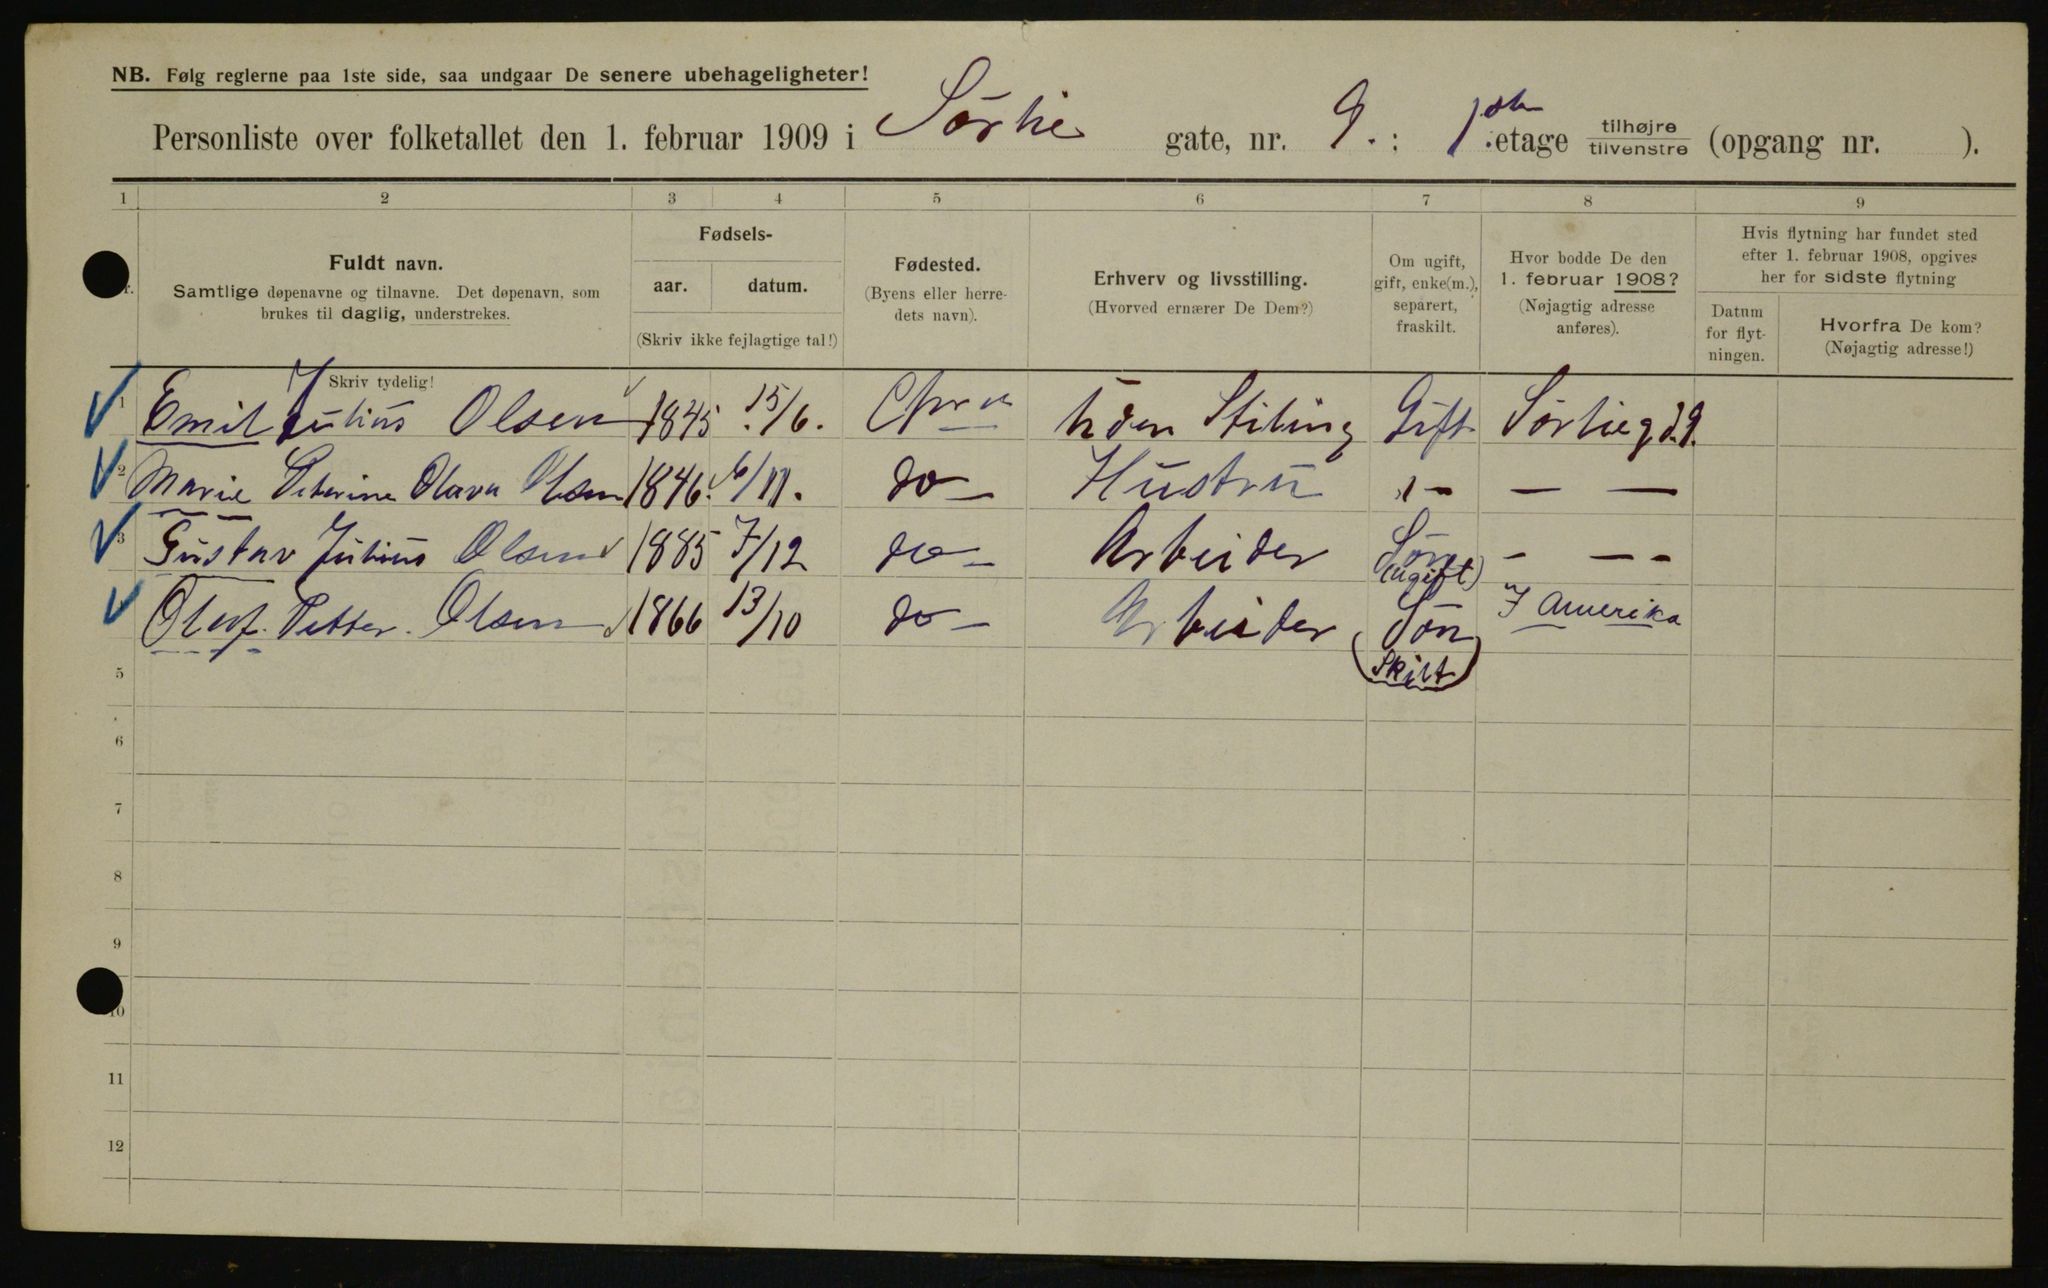 NB. Følg reglerne paa 1ste side, saa undgaar De senere ubehageligheter!
Personliste over folketallet den 1. februar 1909 i Sørlie gate, nr. 9. : 1ste etage tilhøjre tilvenstre (opgang nr. ).
1 2 3 4 5 6 7 8 9
Fuldt navn.
Samtlige døpenavne og tilnavne. Det døpenavn, som
brukes til daglig, understrekes.
Skriv tydelig!
Fødsels-
aar. datum.
(Skriv ikke fejlagtige tal!)
Fødested.
(Byens eller herre-
dets navn).
Erhverv og livsstilling.
(Hvorved ernærer De Dem?)
Om ugift,
gift, enke(m.),
separert,
fraskilt.
Hvor bodde De den
1. februar 1908?
(Nøjagtig adresse
anføres).
Hvis flytning har fundet sted
efter 1. februar 1908, opgives
her for sidste flytning
Datum
for flyt-
ningen.
Hvorfra De kom?
(Nøjagtig adresse!)
1 Emil Julius Olsen 1845 15/6. Chra Uden Stiling Gift Sørlieg d. 9.
2 Marie Peterine Olava Olsen 1846. 6/11. do — Hustru " — — —
3 Gustav Julius Olsen 1885 7/12 do — Arbeider Søn (ugift) — — -
Olaf. Petter. Olsen 1866 13/10 do — Arbeider Søn (Skilt) I Amerika
5
6
7
8
9
10
11
12